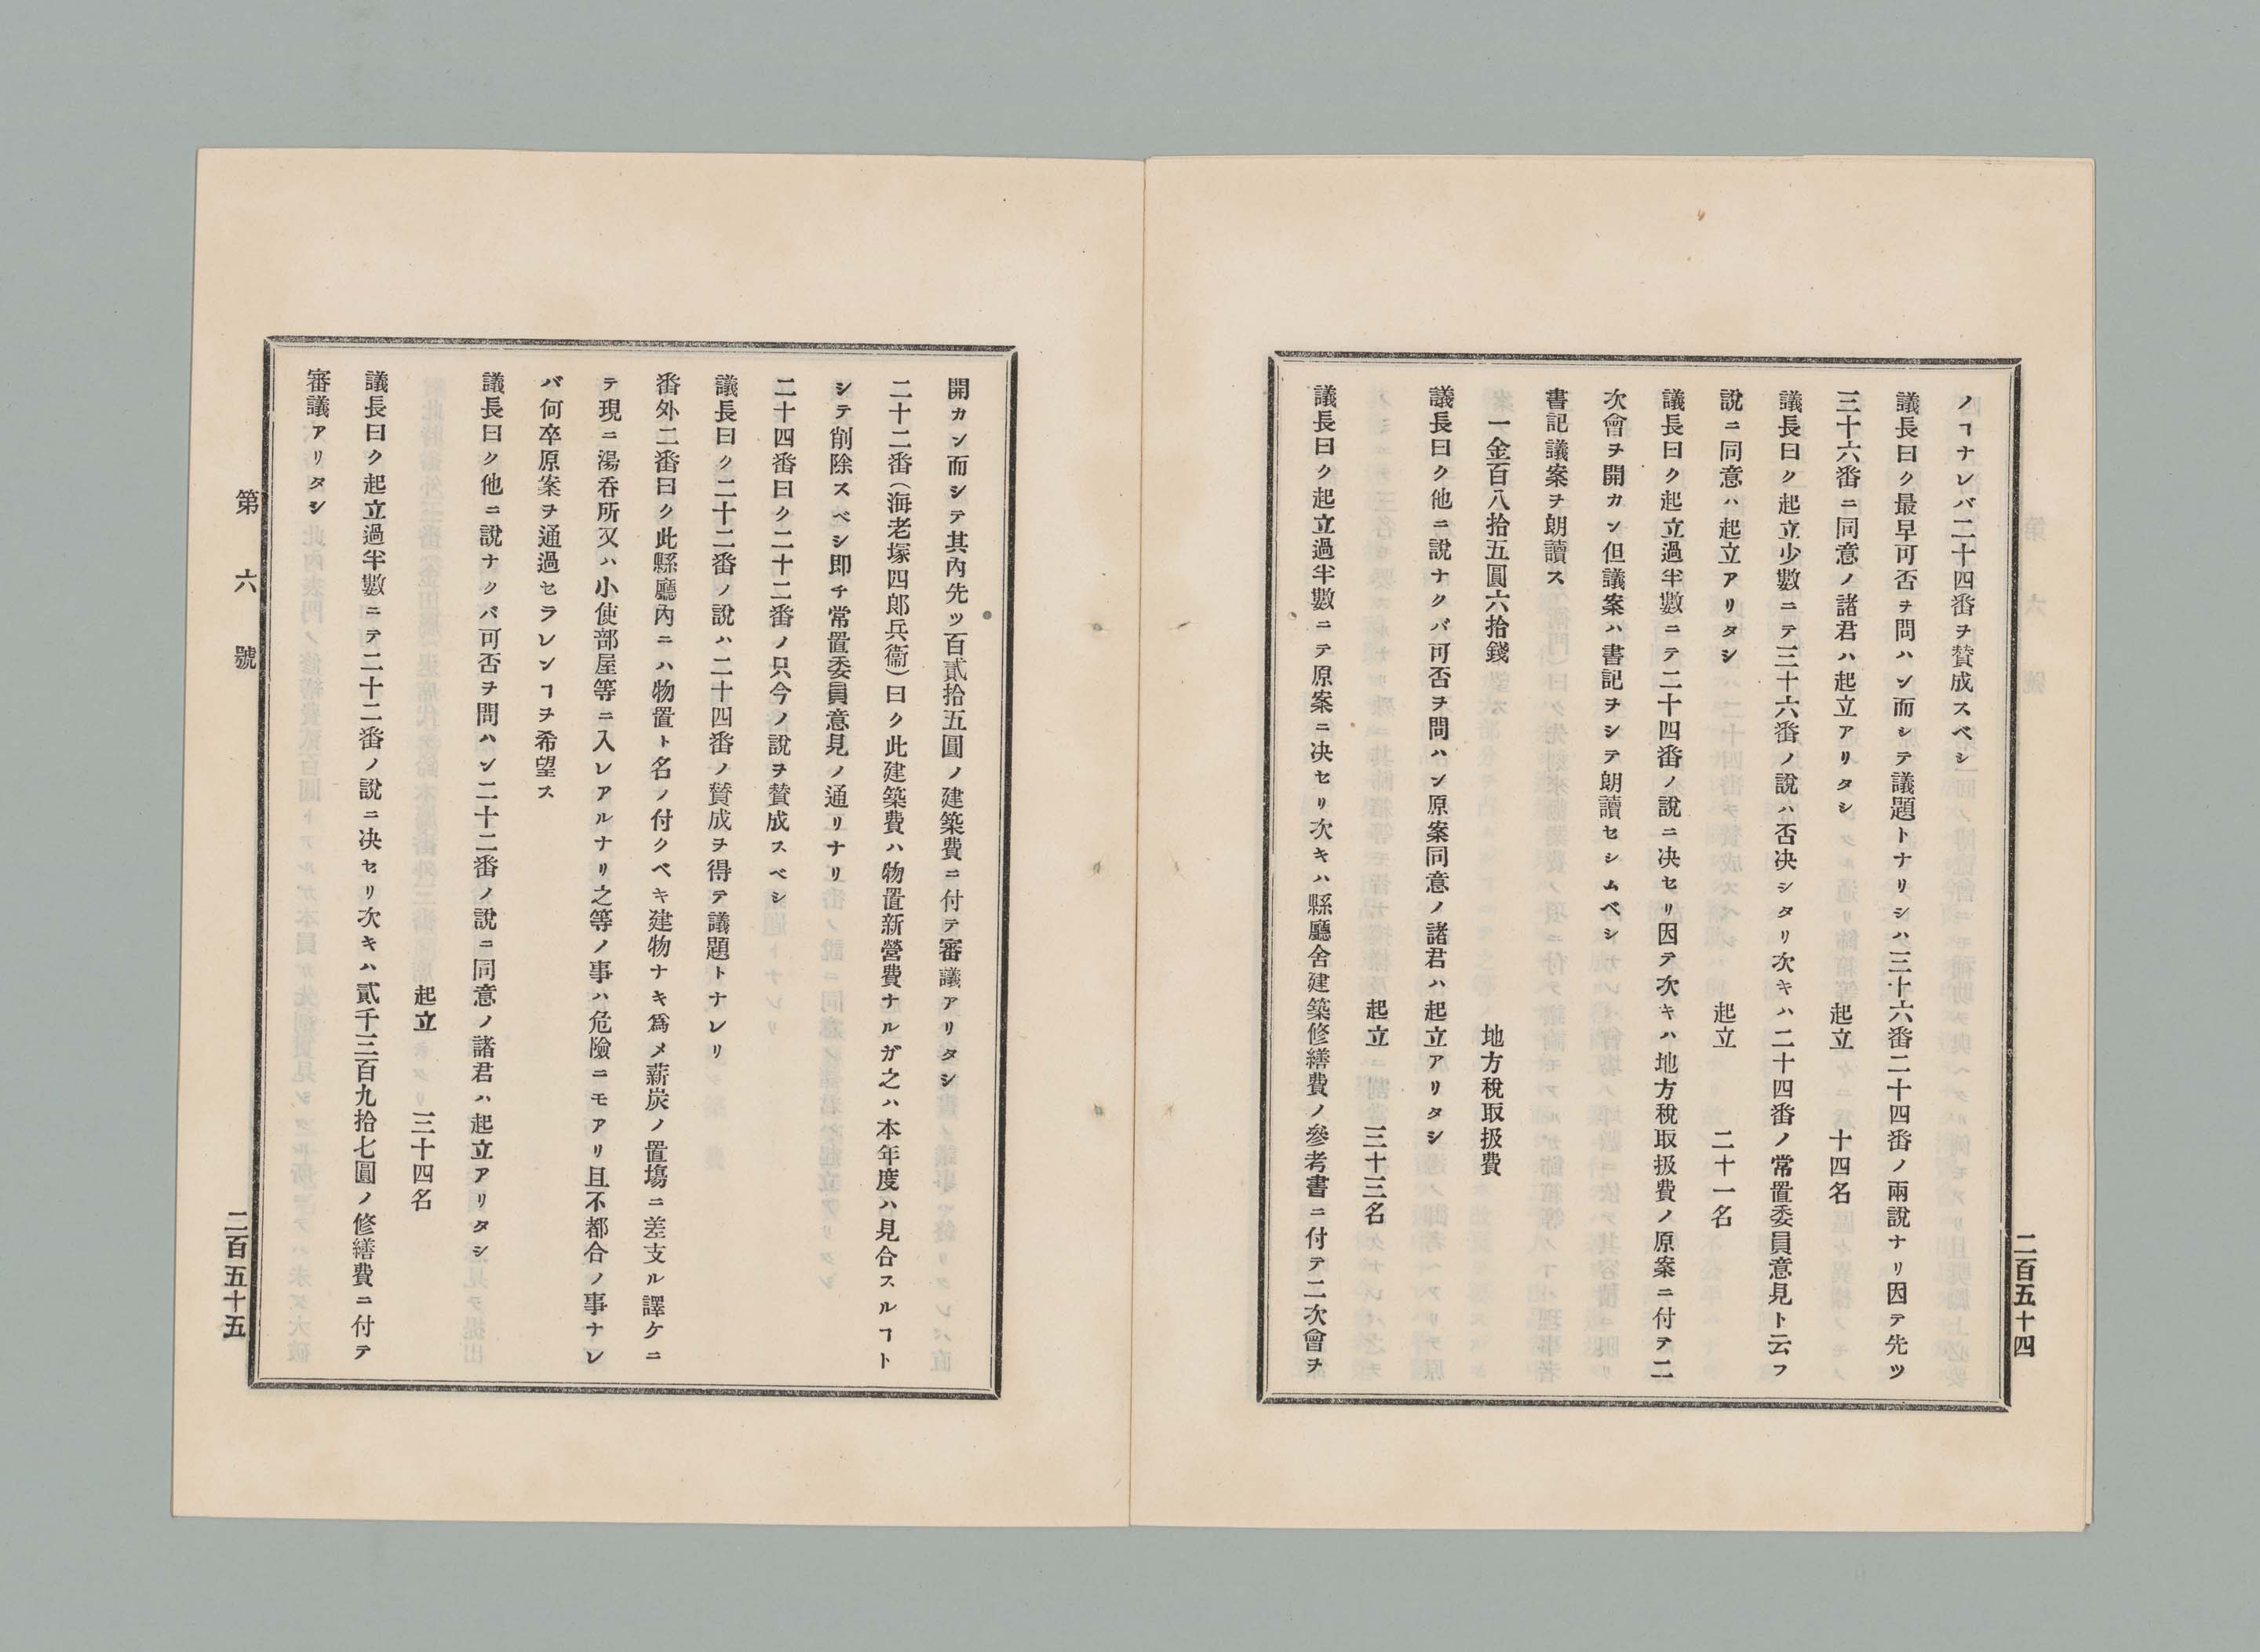 二百五十四
ノヿナレバ二十四番ヲ賛成スベシ
議長曰ク最早可否ヲ問ハン而シテ議題トナリシハ三十六番二十四番ノ兩說ナリ因テ先ツ
三十六番ニ同意ノ諸君ハ起立アリタシ 起立 十四名
議長曰ク起立少數ニテ三十六番ノ說ハ否决シタリ次キハ二十四番ノ常置委員意見ト云フ
說ニ同意ハ起立アリタシ 起立 二十一名
議長曰ク起立過半數ニテ二十四番ノ說ニ决セリ因テ次キハ地方稅取扱費ノ原案ニ付テ二
次會ヲ開カン但議案ハ書記ヲシテ朗讀セシムベシ
書記議案ヲ朗讀ス
一金百八拾五圓六拾錢 地方稅取扱費
議長曰ク他ニ說ナクバ可否ヲ問ハン原案同意ノ諸君ハ起立アリタシ
起立 三十三名
議長曰ク起立過半數ニテ原案ニ决セリ次キハ縣廳舍建築修繕費ノ參考書ニ付テ二次會ヲ
開カン而シテ其內先ツ百貳拾五圓ノ建築費ニ付テ審議アリタシ
二十二番（海老塚四郞兵衞）曰ク此建築費ハ物置新營費ナルガ之ハ本年度ハ見合スルヿト
シテ削除スベシ即チ常置委員意見ノ通リナリ
二十四番曰ク二十二番ノ只今ノ說ヲ賛成スベシ
議長曰ク二十二番ノ說ハ二十四番ノ賛成ヲ得テ議題トナレリ
番外二番曰ク此縣廳內ニハ物置ト名ノ付クベキ建物ナキ爲メ薪炭ノ置塲ニ差支ル譯ケニ
テ現ニ湯呑所又ハ小使部屋等ニ入レアルナリ之等ノ事ハ危險ニモアリ且不都合ノ事ナレ
バ何卒原案ヲ通過セラレンヿヲ希望ス
議長曰ク他ニ說ナクバ可否ヲ問ハン二十二番ノ說ニ同意ノ諸君ハ起立アリタシ
起立 三十四名
議長曰ク起立過半數ニテ二十二番ノ說ニ决セリ次キハ貳千三百九拾七圓ノ修繕費ニ付テ
審議アリタシ
第六號 二百五十五